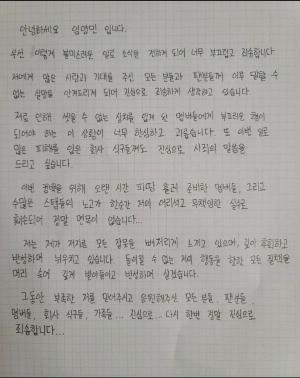 안녕하세요 임영민 입니다.
우선 이렇게 불미스러운 일로 소식을 전하게 되어 너무 부끄럽고 죄송합니다
저에게 많은 사랑과 기대를 주신 모든 분들과 팬분들께 이루 말할 수
없는 실망을 안겨드리게 되어 진심으로 죄송하게 생각하고 있습니다.
저로 인해 씻을 수 없는 상처를 입게 된 멤버들에게 부끄러운 형이
되어야하는 이 상황이 너무 한심하고 괴롭습니다. 또 이번 일로
많은 피해를 입은 회사 식구들께도 진심으로 사죄의 말씀을
드리고 싶습니다.
이번 컴백을 위해 오랜 시간 피땀 흘려 준비한 멤버들, 그리고
수많은 스탭들의 노고가 한순간 저의 어리석고 무책임한 실수로
훼손되어 정말 면목이 없습니다...
저는 제가 저지른 모든 잘못을 뼈저리게 느끼고 있으며, 깊이 후회하고
반성하며 뉘우치고 있습니다. 돌이킬 수 없는 저의 행동을 향한 모든 질책을
머리 숙여 깊게 받아들이고 반성하며 살겠습니다.
그동안 부족한 저를 믿어주시고 응원해주신 모든 분들, 팬분들,
멤버들, 회사 식구들, 가족들... 진심으로... 다시 한번 정말 진심으로
죄송합니다...